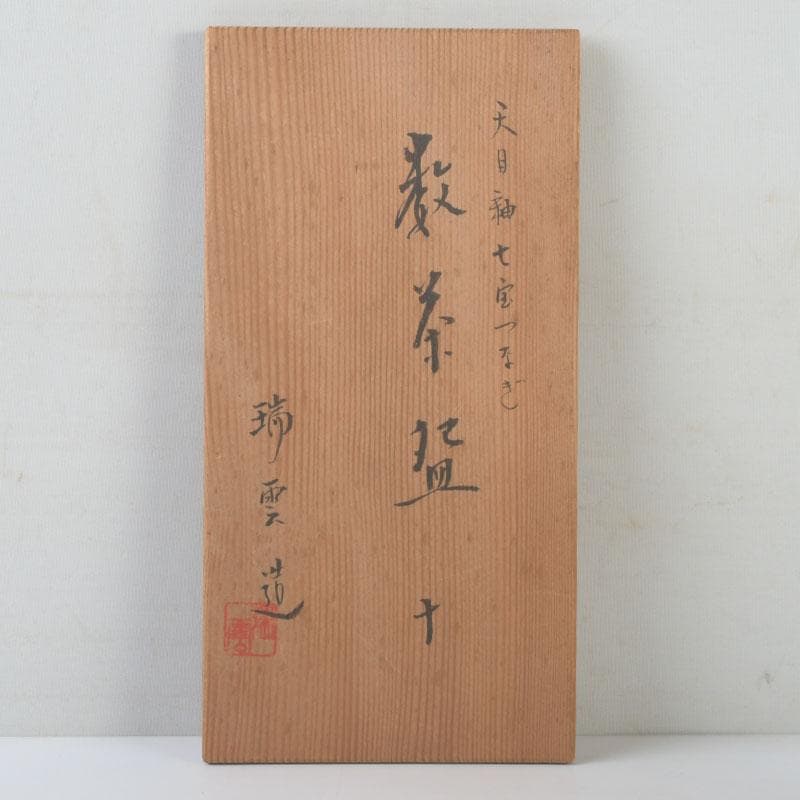 天目釉七宝つなぎ
数茶盌 十
瑞雲造